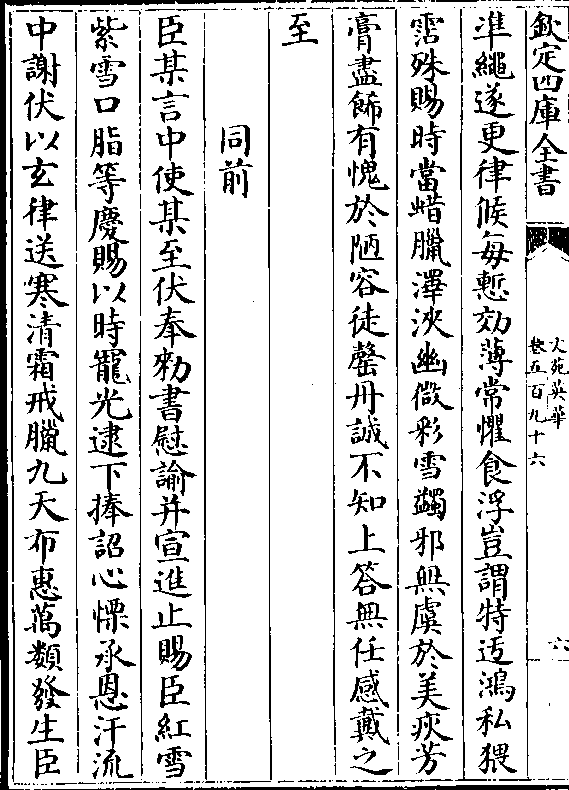 欽定四庫全書
文苑英華
卷五百九十六
六
準繩遂更律候每慙効薄常懼食浮豈謂特迃鴻私猥
霑殊賜時當蜡臘澤浹幽微彩雪蠲邪無虞於美疢芳
膏盡飾有愧於陋容徒罄丹誠不知上答無任感戴之
至
同前
臣某言中使某至伏奉勑書慰諭并宣進止賜臣紅雪
紫雪口脂等慶賜以時寵光逮下捧詔心慄承恩汗流
中謝伏以玄律送寒清霜戒臘九天布惠萬類發生臣